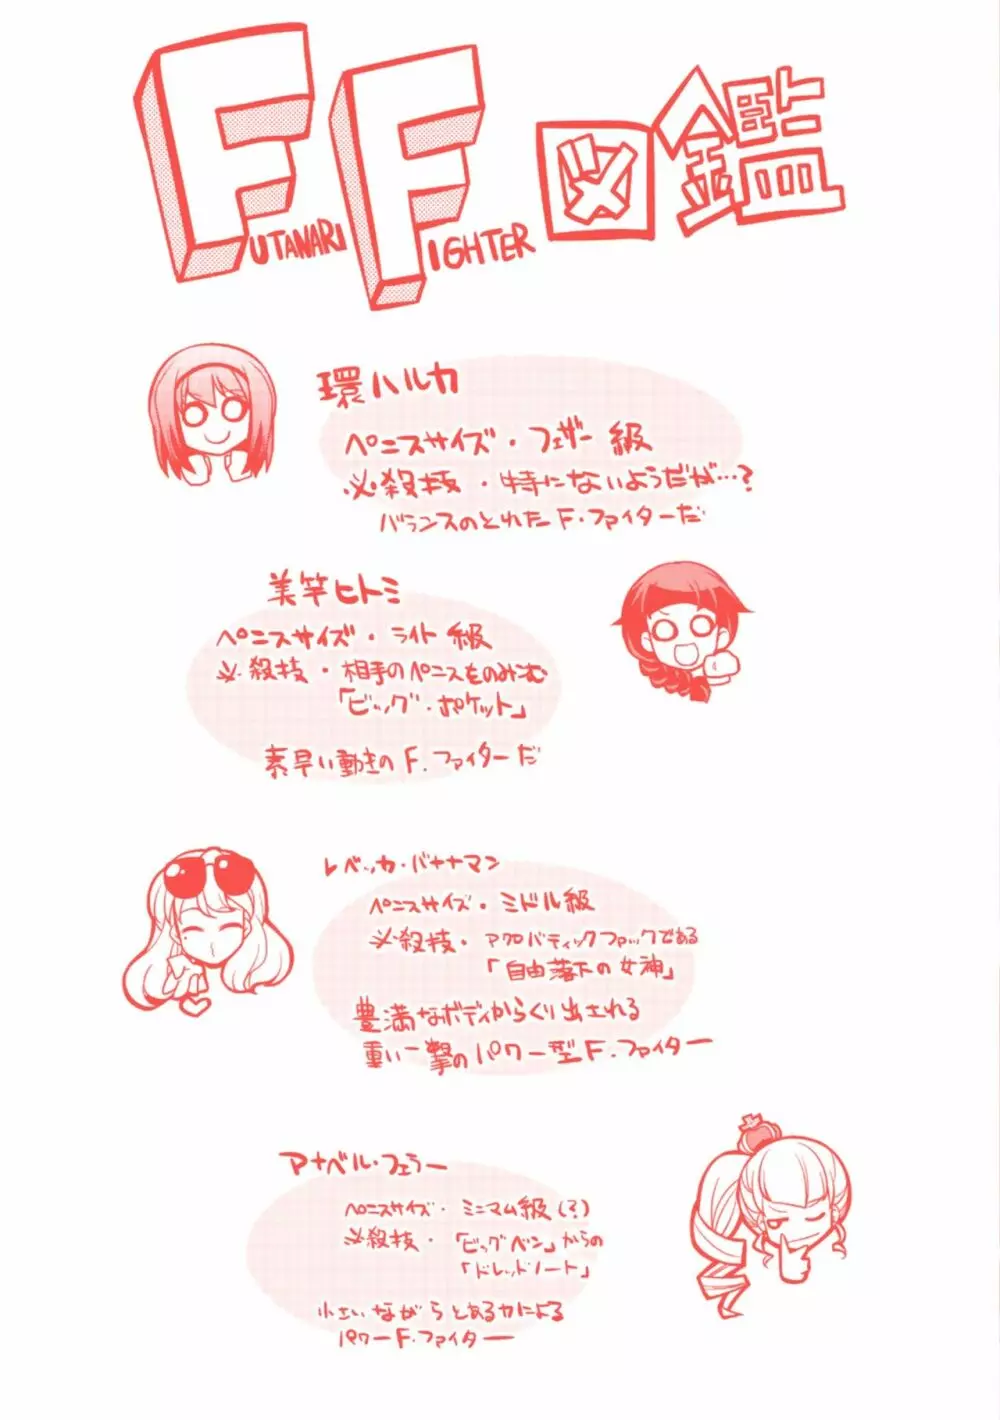 FUTANARI FIGHTER 図鑑
環ハルカ
ペニスサイズ・フェザー級
必殺技・特にないようだが…?
バランスのとれたF.ファイターだ
美竿ヒトミ
ペニスサイズ・ライト級
必殺技・相手のペニスをのみこむ
「ビッグ・ポケット」
素早い動きのF.ファイターだ
レベッカ・バナナマン
ペニスサイズ・ミドル級
必殺技・アクロバティックファックである
「自由落下の女神」
豊満なボディからくり出される
重い一撃のパワー型F.ファイター
アナベル・フェラー
ペニスサイズ・ミニマム級(?)
必殺技・「ビッグベン」からの
「ドレッドノート」
小さいながらとある力による
パワーF.ファイター